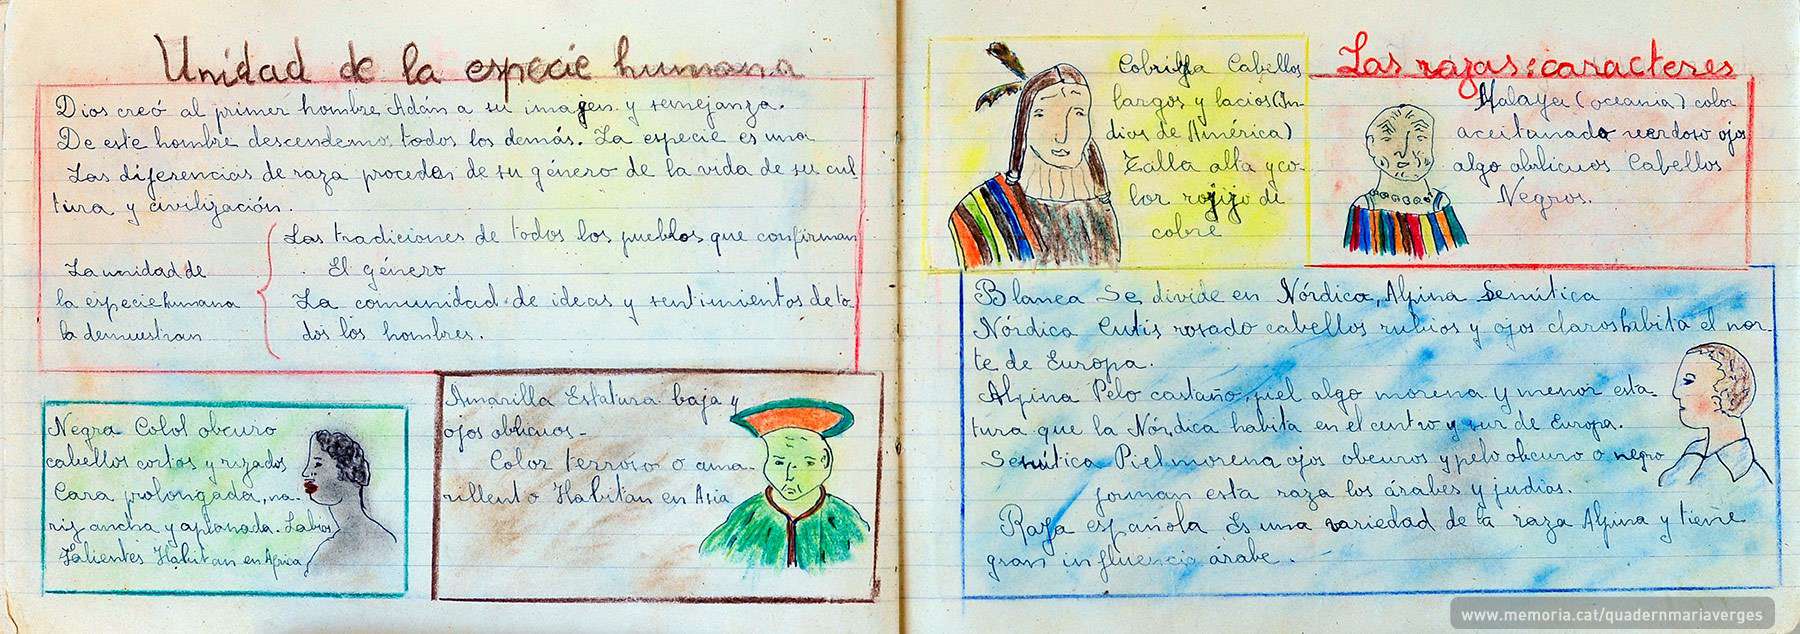 Unidad de la especie humana
Dios creó al primer hombre Adán a su imagen y semejanza.
De este hombre descendemos todos los demás. La especie es una
Las diferencias de raza proceden de su género de la vida de su cul
tura y civilización.
La unidad de
la especie humana
la demuestran
Las tradiciones de todos los pueblos que confirman
El género
La comunidad de ideas y sentimientos de to-
dos los hombres.
Negra Colol obcuro
cabellos cortos y rizados
Cara prolongada, na-
riz ancha y aplanada. Labios
Salientes Habitan en Africa
Amarilla Estatura baja y
ojos oblicuos-
Color terroso o ama-
rillento Habitan en Asia
Cobriza Cabellos
largos y lacios (In-
dios de América)
Talla alta y co-
lor rojizo de
cobre
Las razas: caracteres
Malaya (oceania) color
aceitunado verdoso ojos
algo oblicuos Cabellos
Negros.
Blanca Se divide en Nórdica, Alpina Semítica
Nórdica Cutis rosado cabellos rubios y ojos claros habita el nor-
te de Europa.
Alpina Pelo castaño, piel algo morena y menor esta-
tura que la Nórdica habita en el centro y sur de Europa.
Semítica Piel morena ojos obcuros y pelo obcuro o negro
forman esta raza los árabes y judios.
Raza española Es una variedad de la raza Alpina y tiene
gran influencia árabe.
www.memoria.cat/quadernmariaverges